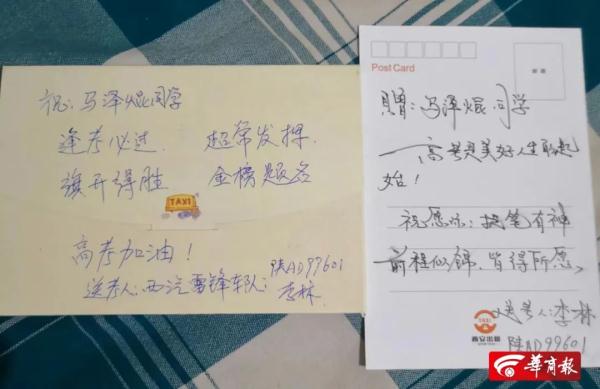 祝：马泽焜同学
逢考必过 超常发挥
旗开得胜 金榜题名
TAXI
高考加油！
送考人：西汽雷锋车队：陕AD99601
李林
Post Card
赠：马泽焜同学
高考是美好人生的起
始！
祝愿你：提笔有神
前程似锦，皆得所愿
送考人：李林
陕AD99601
TAXI
西安出租
华商报